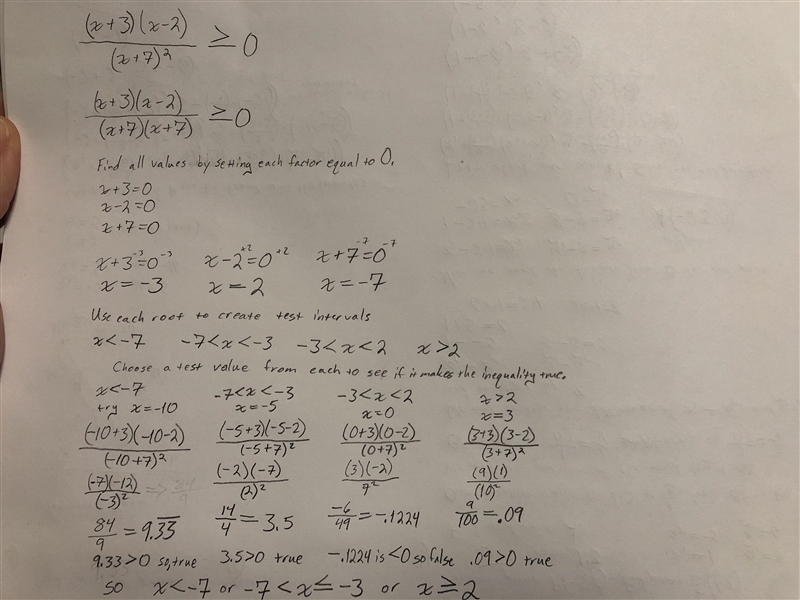 (x+3)(x-2) / (x+7)² ≥ 0
(x+3)(x-2) / (x+7)(x+7) ≥ 0
Find all values by setting each factor equal to 0.
x+3=0
x-2=0
x+7=0
x+3⁻³=0⁻³ x-2⁺²=0⁺² x+7⁻⁷=0⁻⁷
x=-3 x=2 x=-7
Use each root to create test intervals
x<-7 -7<x<-3 -3<x<2 x>2
Choose a test value from each to see if it makes the inequality true.
x<-7 -7<x<-3 -3<x<2 x>2
try x=-10 x=-5 x=0 x=3
(-10+3)(-10-2) / (-10+7)² (-5+3)(-5-2) / (-5+7)² (0+3)(0-2) / (0+7)² (3+3)(3-2) / (3+7)²
(-7)(-12) / (-3)² (-2)(-7) / (2)² (3)(-2) / 7² (9)(1) / (10)²
84/9 = 9.3̅3̅ 14/4 = 3.5 -6/49 = -.1224 9/100 = .09
9.33>0 so, true 3.5>0 true -.1224 is <0 so false .09>0 true
so x<-7 or -7<x≤-3 or x≥2